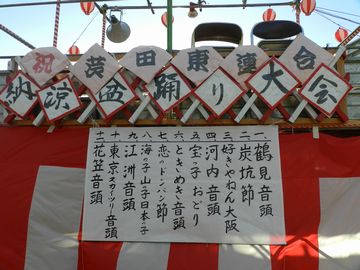 祝茨田東連合
納涼盆踊り大会
一、鶴見音頭
二、炭坑節
三、好きやねん大阪
四、河内音頭
五、宝の子おどり
六、ときめき音頭
七、恋のドンパン節
八、海の子山の子日本の子
九、江洲音頭
十、東京スカイツリー音頭
十一、花笠音頭